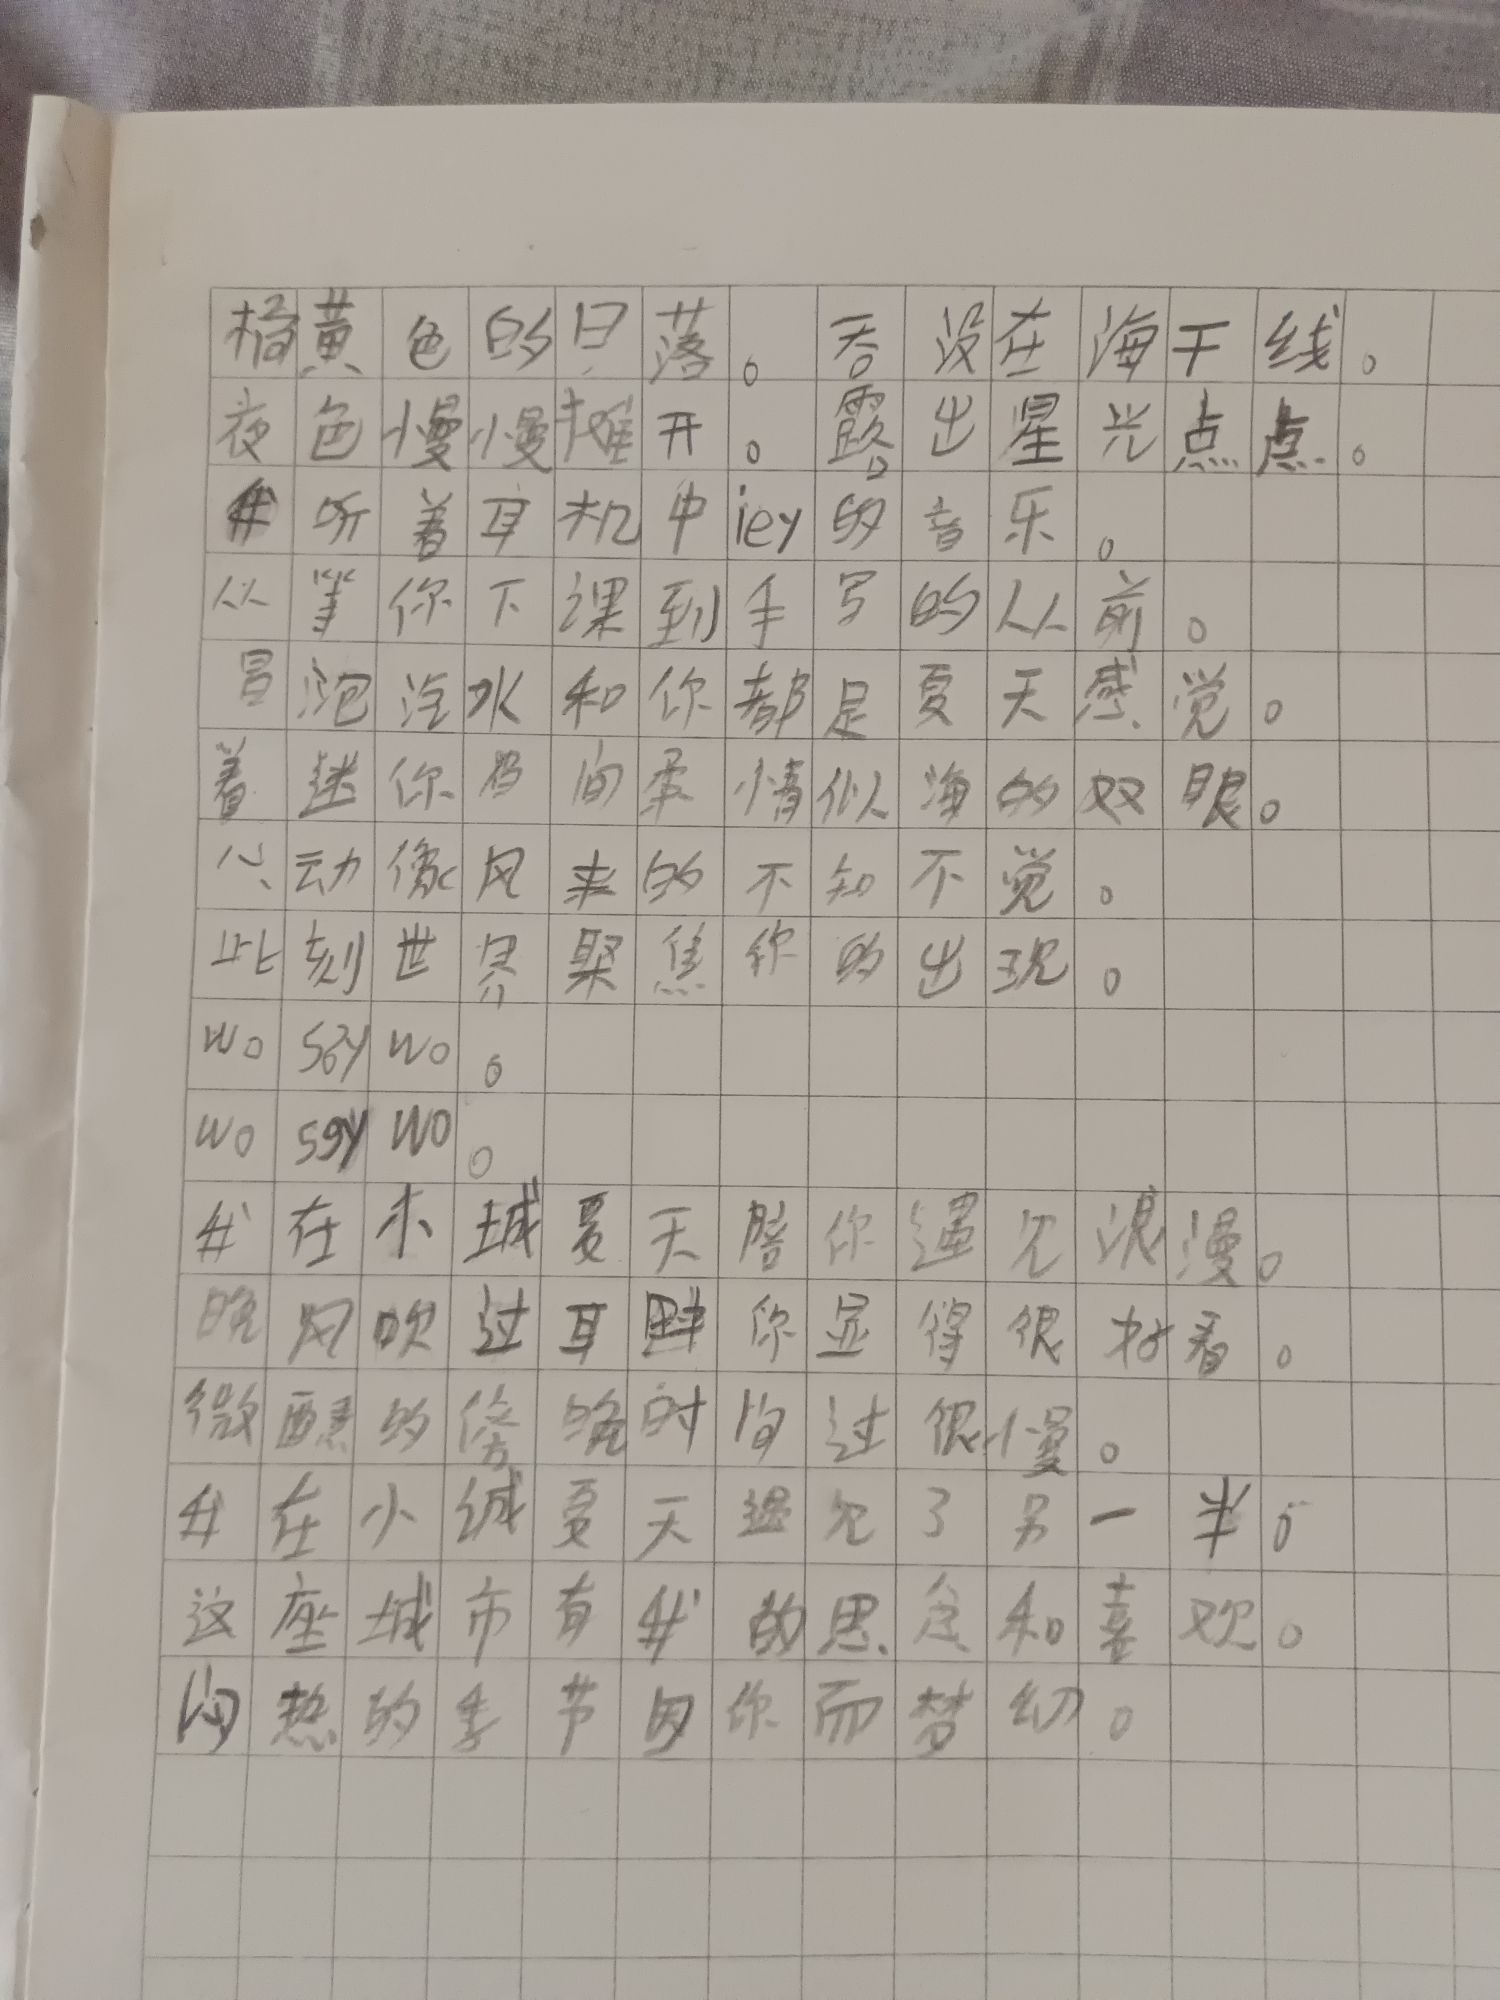 橘黄色的日落。吞没在海平线。
夜色慢慢摊开。露出星光点点。
我听着耳机中iey的音乐。
从等你下课到手写的从前。
冒泡汽水和你都是夏天感觉。
着迷你眉间柔情似海的双眼。
心动像风来的不知不觉。
此刻世界聚焦你的出现。
wo say wo。
wo say wo。
我在小城夏天陪你遇见浪漫。
晚风吹过耳畔你显得很好看。
微醺的傍晚时间过很慢。
我在小城夏天遇见了另一半。
这座城市有我的思念和喜欢。
闷热的季节因你而梦幻。